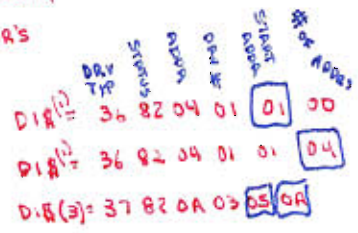 R's
DRV TYP STATUS ADDR DRV # START ADDR # OF ADDRS
DIR(1)= 36 82 04 01 01 00
DIR(1)= 36 82 04 01 01 04
DIR(3)= 37 82 0A 03 05 0A